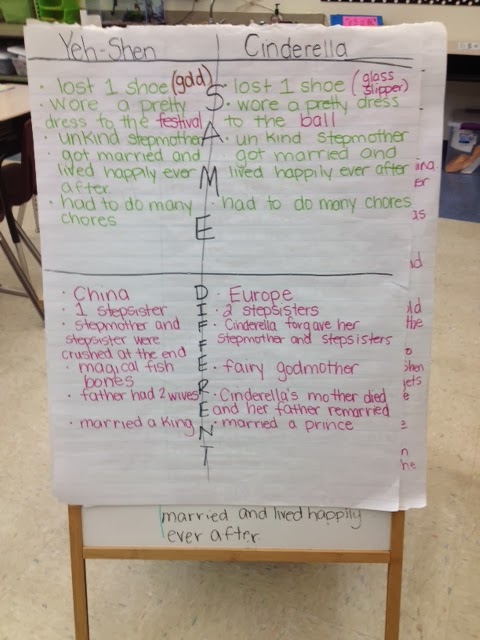 Yeh-Shen
Cinderella
• lost 1 shoe (gold)
• wore a pretty
dress to the festival
• unkind stepmother
• got married and
lived happily ever
after
• had to do many
chores
S
A
M
E
• lost 1 shoe (glass
slipper)
• wore a pretty dress
to the ball
• unkind stepmother
• got married and
lived happily ever after
• had to do many chores
• China
• 1 stepsister
• stepmother and
stepsister were
crushed at the end
• magical fish
bones
• father had 2 wives
• married a King
D
I
F
F
E
R
E
N
T
• Europe
• 2 stepsisters
• Cinderella forgave her
stepmother and stepsisters
• fairy godmother
• Cinderella's mother died
and her father remarried
• married a prince
married and lived happily
ever after